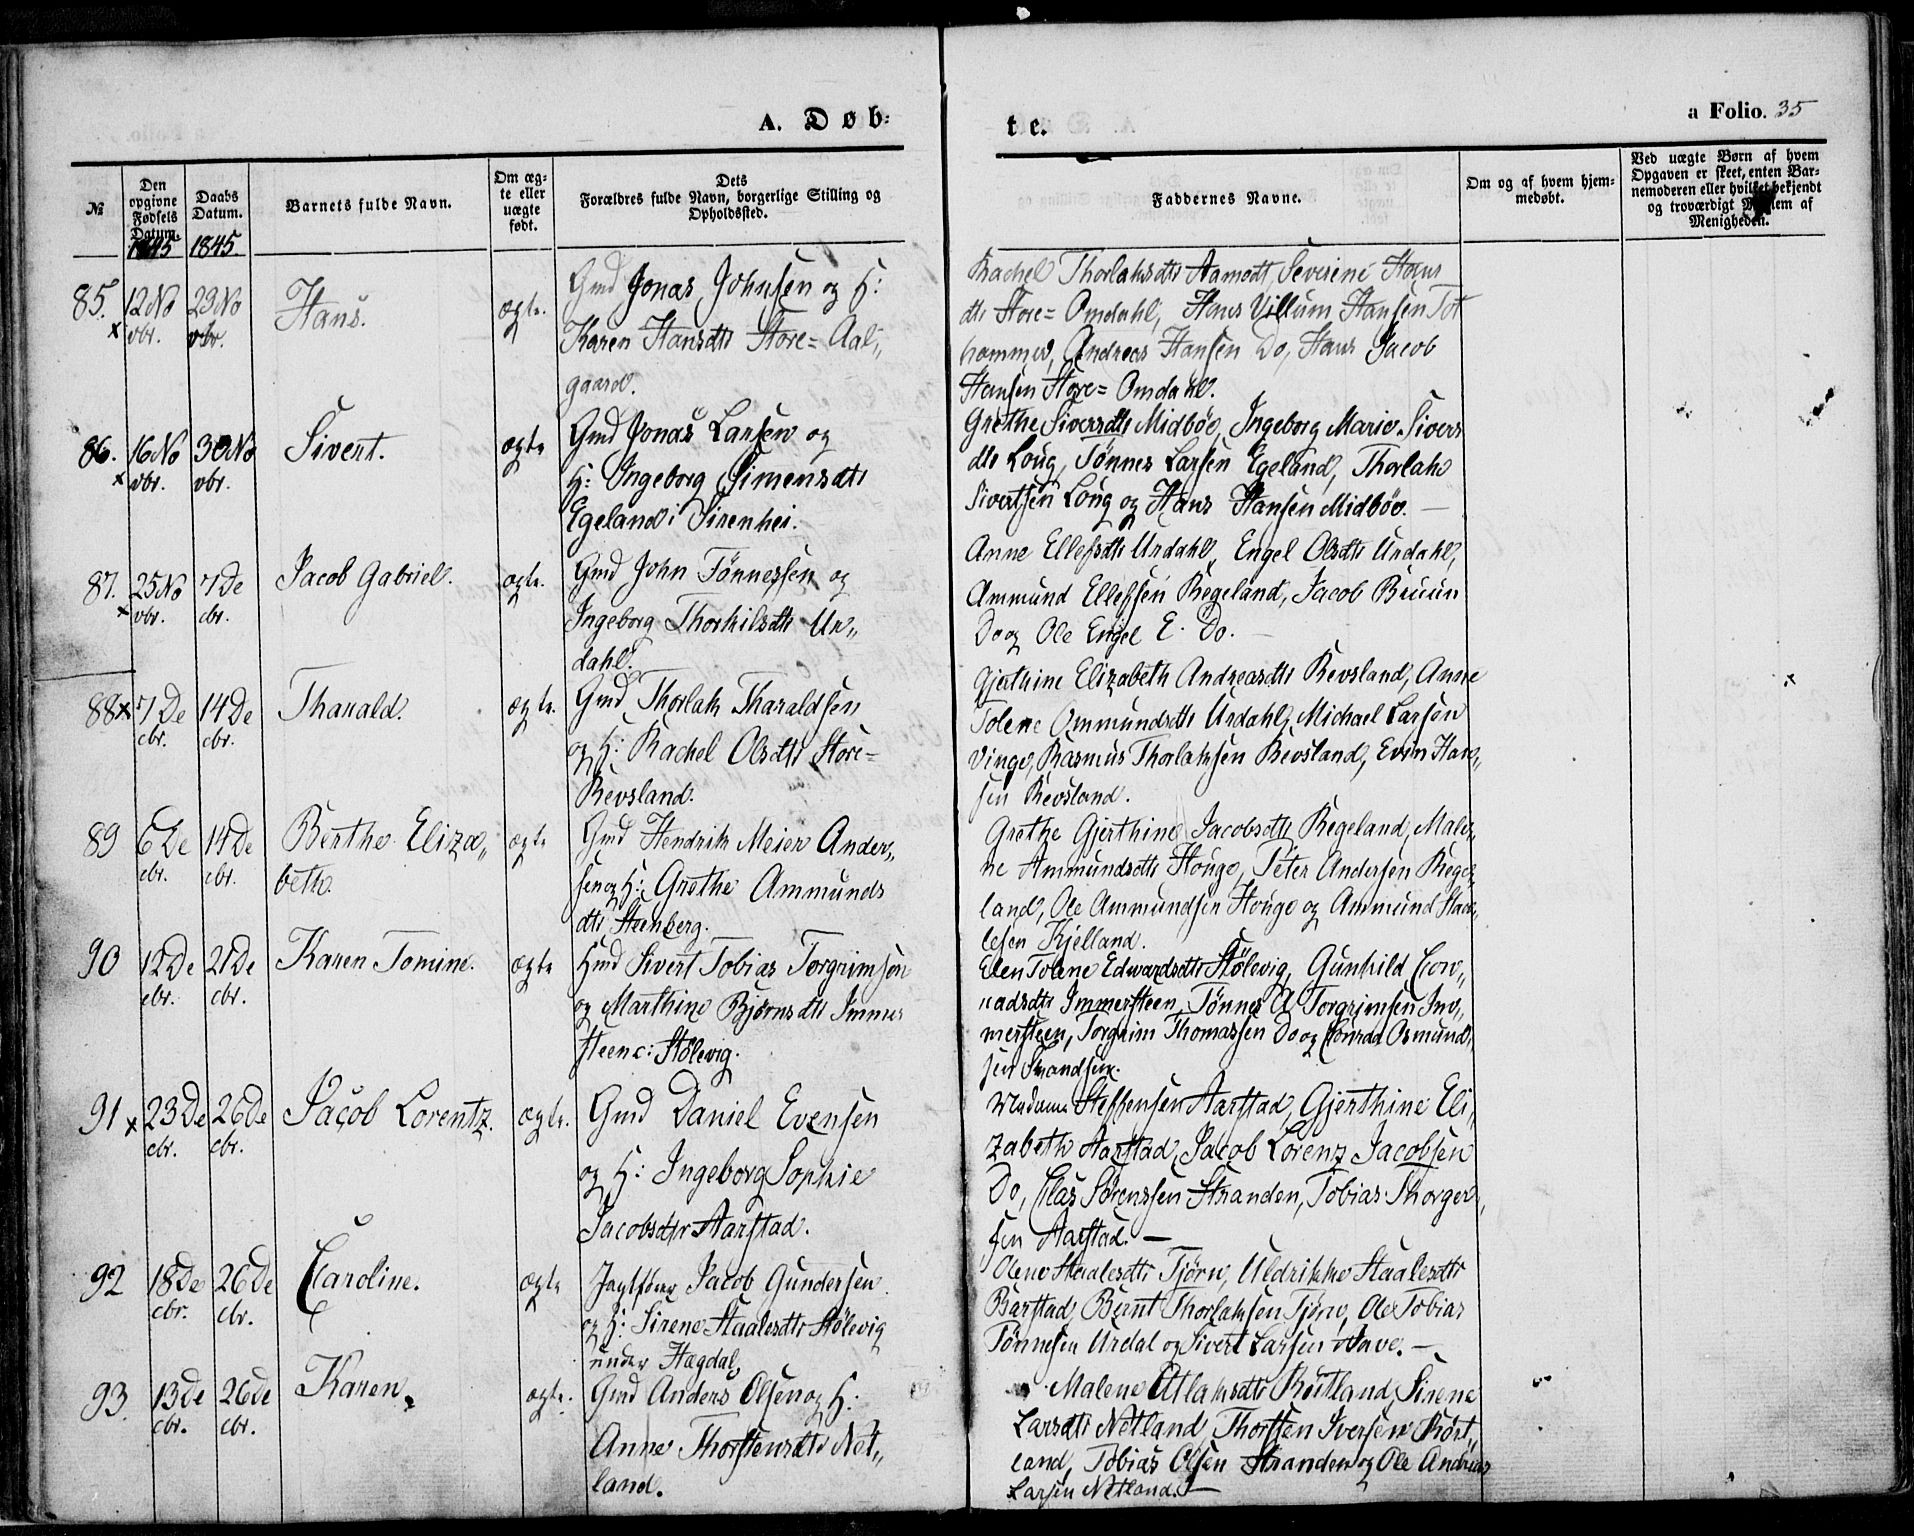 A. Døb=
te.
a Folio. 35
№
Den opgivne Fødsels Datum. 1845
Daabs Datum. 1845.
Barnets fulde Navn.
Om ægte eller uægte født.
Dets Forældres fulde Navn, borgerlige Stilling og Opholdssted.
Faddernes Navne.
Om og af hvem hjemmedøbt.
Ved uægte Børn af hvem Opgaven er skeet, enten Barnemoderen eller hvilket bekjendt og troværdigt Medlem af Menigheden.
85. x 12 No vbr. 23 No vbr. Hans. ægte.
Gmd Jonas Johnsen og H:
Karen Hansdtr Store= Aal„
gaard.
Rachel Thorlaksdtr Aamodt, Severine Hans
dtr Store= Omdahl, Hans Villum Hansen Tot
hammer, Andreas Hansen Do, Hans Jacob
Hansen Store= Omdahl.
86. x 16 No vbr. 30 No vbr. Sivert. ægte
Gmd Jonas Larsen og
H: Ingeborg Simensdtr
Egeland i Sirenhei.
Grethe Siversdtr Midbøe, Ingeborg Marie Sivers
dtr Loug, Tønnes Larsen Egeland, Thorlak
Sivertsen Loug og Hans Hansen Midbøe. —
87. x 25 No vbr. 7 De cbr. Jacob Gabriel. ægte.
Gmd John Tønnessen og
Ingeborg Thorkilsdtr Ur„
dahl.
Anne Ellefsdtr Urdahl, Engel Olsdtr Urdahl,
Ammund Ellefsen Regeland, Jacob Bruun
Do og Ole Engel E. Do. —
88 x 7 De cbr. 14 De cbr. Tharald. ægte.
Gmd Thorlak Tharaldsen
og H: Rachel Olsdtr Store=
Revsland.
Gjerthine Elizabeth Andreasdtr Revsland, Anne
Tolene Ommundsdtr Urdahl, Michael Larsen
Vinge, Rasmus Thorlaksen Revsland, Even Han„
sen Revsland.
89 6 De cbr. 14 De cbr. Berthe Eliza„
beth. ægte
Gmd Hendrik Meier Ander„
sen og H: Grethe Ammunds
dtr Steenberg.
Grethe Gjerthine Jacobsdtr Regeland, Male„
ne Ammundsdtr Houge, Peter Andersen Rege„
land, Ole Ammundsen Houge og Ammund Staa„
lesen Kjelland.
90 12 De cbr. 21 De cbr. Karen Tomine. ægte
Hmd Sivert Tobias Torgrimsen
og Marthine Bjørnsdtr Immer
steen c: Stølevig.
Elen Tolene Edwardsdtr Stølevig, Gunhild Con„
radsdtr Immersteen, Tønnes A Torgrimsen Im„
mersteen, Torgrim Thomassen Do og Conrad Osmund„
sen Strandsen.
91 x 23 De cbr. 26 De cbr. Jacob Lorentz. ægte.
Gmd Daniel Evensen
og H: Ingeborg Sophie
Jacobsdtr Aarstad.
Madame Steffensen Aarstad, Gjerthine Eli„
zabeth Aarstad, Jacob Lorenz Jacobsen
Do, Elias Sørenssen Stranden, Tobias Thorger„
sen Aarstad. —
92 18 De cbr. 26 De cbr. Caroline. ægte
Jagtfører Jacob Gundersen
og H: Sirene Staalesdtr Stølevig
under Hægdal.
Olene Staalesdtr Tjørn, Uldrikke Staalesdtr
Barstad, Bernt Thorlaksen Tjørn, Ole Tobias
Tønnesen Urdal og Sivert Larsen Have. —
93. 13 De cbr. 26 De cbr. Karen. ægte.
Gmd Anders Olsen og H:
Anne Thorstensdtr Net„
land.
Malene Atlaksdtr Røitland, Sirene
Larsdtr Netland, Thorsten Iversen Røit„
land, Tobias Olsen Stranden og Ole Andreas
Larsen Netland. —